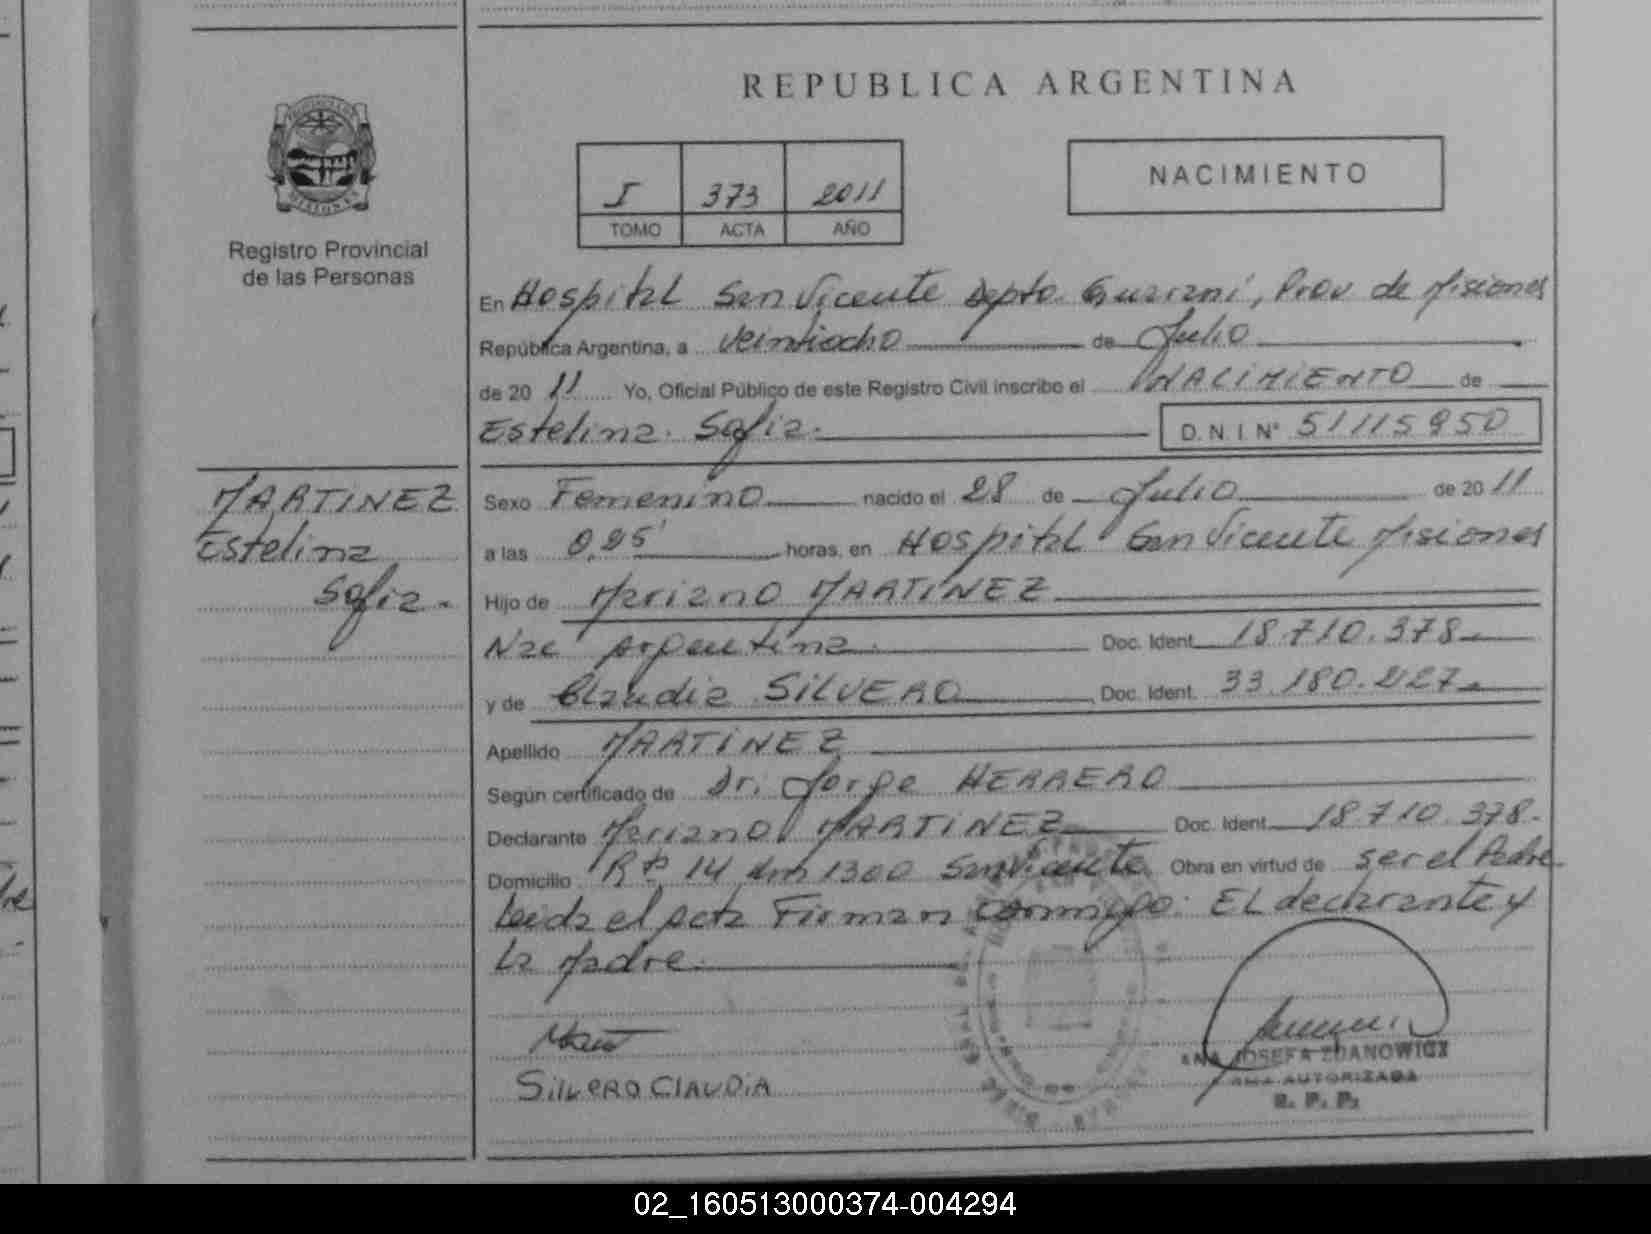 REPUBLICA ARGENTINA
I 373 2011
TOMO ACTA AÑO
NACIMIENTO
Registro Provincial
de las Personas
En Hospital San Vicente Depto. Guarani, Prov. de Misiones
República Argentina, a veintiocho de Julio
de 20 11 Yo, Oficial Público de este Registro Civil inscribo el NACIMIENTO de
Estelina Sofia. D.N.I. Nº 51115950
MARTINEZ
Estelina
Sofia.
Sexo Femenino nacido el 28 de Julio de 20 11
a las horas, en Hospital San Vicente Misiones
Hijo de Mariano MARTINEZ
Nac Argentina. Doc. Ident. 18.710.378
y de Claudia SILVERO Doc. Ident. 33.180.227
Apellido MARTINEZ
Según certificado de Dr. Jorge HERRERO
Declarante Mariano MARTINEZ Doc. Ident. 18710.378.
Domicilio 14 Km 1300 San Vicente Obra en virtud de ser el Padre
Leida el acta Firman conmigo: EL declarante y
La Madre.
SILVERO CLAUDIA
ANA JOSEFA ZDANOWICZ
AUTORIZADA
R. P. P.
02_160513000374-004294